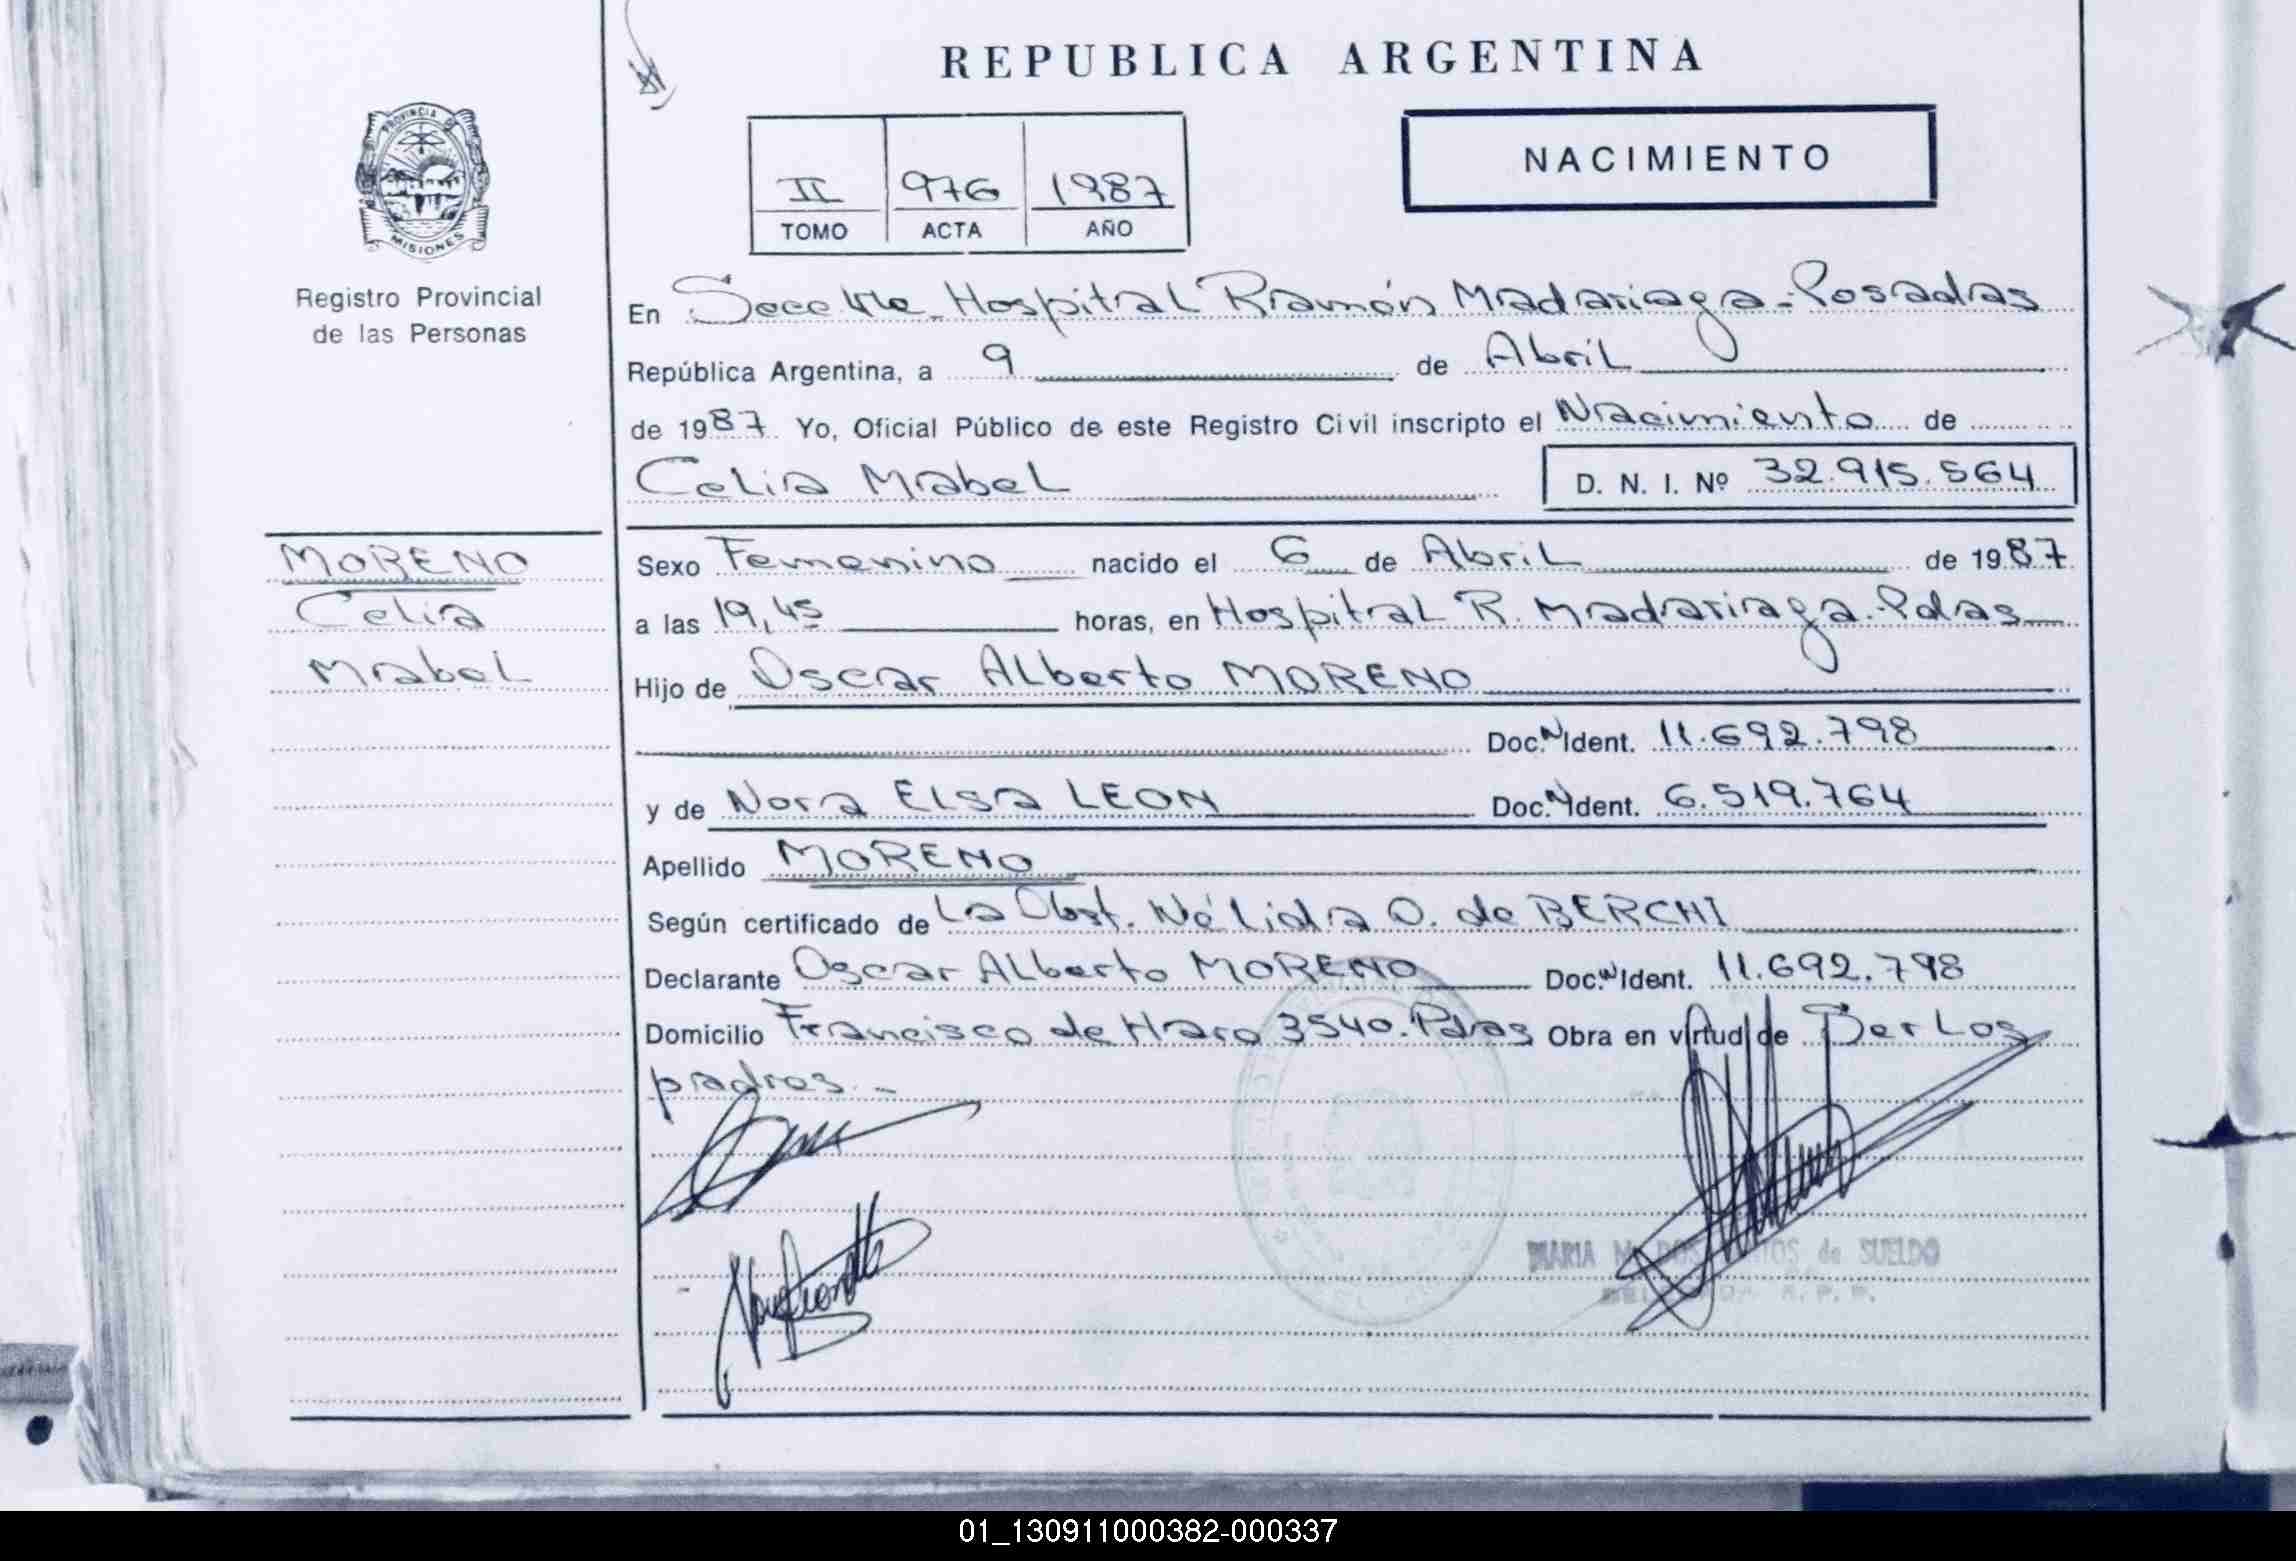 REPUBLICA ARGENTINA
PROVINCIA DE
MISIONES
Registro Provincial
de las Personas
II 976 1987
TOMO ACTA AÑO
NACIMIENTO
En Secc. Hospital Ramón Madariaga - Posadas
República Argentina, a 9 de Abril
de 1987. Yo, Oficial Público de este Registro Civil inscripto el Nacimiento de
Celia Mabel D. N. I. Nº 32.915.564
MORENO
Celia
Mabel
Sexo Femenino nacido el 6 de Abril de 1987
a las 19,45 horas, en Hospital R. Madariaga. Pdas
Hijo de Oscar Alberto MORENO
Doc. N Ident. 11.692.798
y de Nora Elsa LEON Doc. N Ident. 6.519.764
Apellido MORENO
Según certificado de La Obst. Nélida O. de BERCHI
Declarante Oscar Alberto MORENO Doc. N Ident. 11.692.798
Domicilio Francisco de Haro 3540. Pdas Obra en virtud de Ser Los
padres. -
MARIA M. DOS SANTOS de SUELDO
R. P. P.
01_130911000382-000337